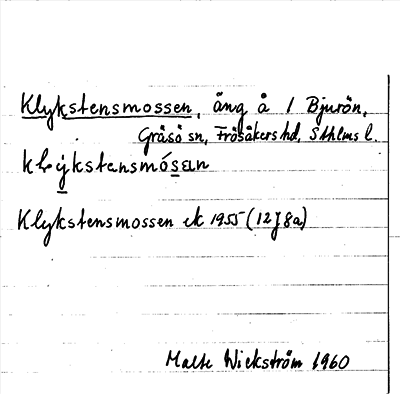 Klykstensmossen, äng å 1 Bjurön,
Gräsö sn, Frösåkers hd, Sthlms l.
klẏkstensmósεn
Klykstensmossen ek 1955 (12J8a)
Malte Wickström 1960